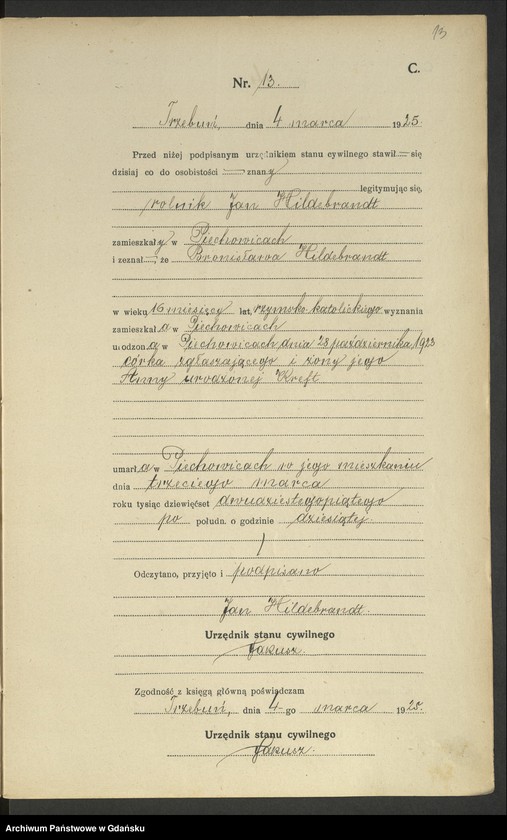 13
C.
Nr. 13.
Trzebuń, dnia 4 marca 1925.
Przed niżej podpisanym urzędnikiem stanu cywilnego stawił się
dzisiaj co do osobistości znany
legitymując się,
rolnik Jan Hildebrandt
zamieszkały w Piechowicach
i zeznał, że Bronisława Hildebrandt
w wieku 16 miesięcy let, rzymsko katolickiego wyznania
zamieszkała w Piechowicach
urodzona w Piechowicach, dnia 28 października 1923
córka zgłaszającego i żony jego
Anny urodzonej Kreft
umarła w Piechowicach w jego mieszkaniu
dnia trzeciego marca
roku tysiąc dziewięćset dwudziestegopiątego
po połudn. o godzinie dziesiątej.
Odczytano, przyjęto i podpisano
Jan Hildebrandt.
Urzędnik stanu cywilnego
Zgodność z księgą główną poświadczam
Trzebuń, dnia 4-go marca 1925.
Urzędnik stanu cywilnego
Archiwum Państwowe w Gdańsku